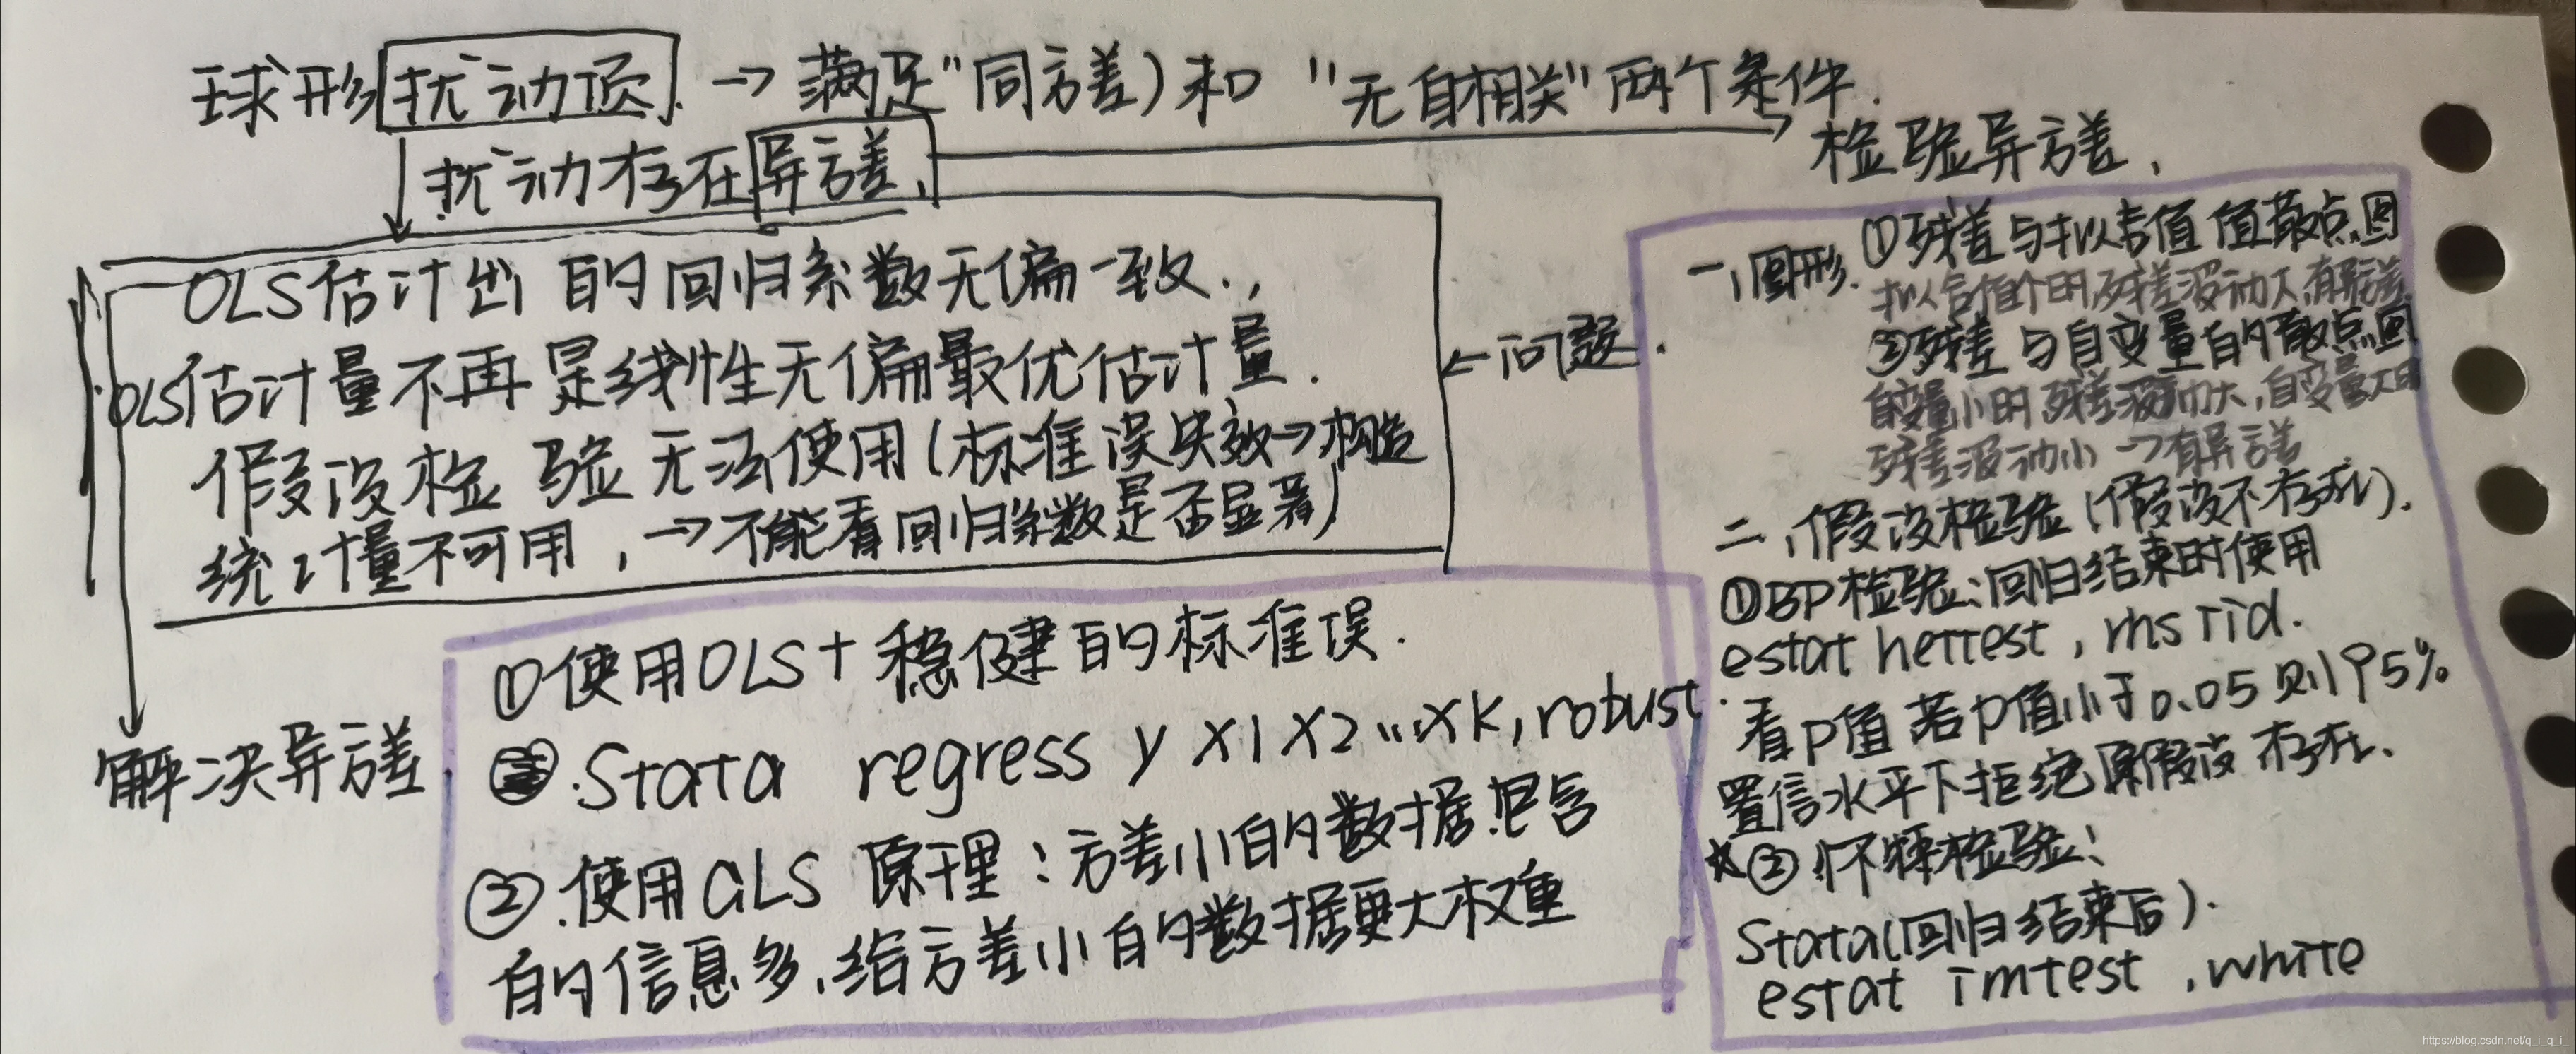 球形扰动项.→满足"同方差)和"无自相关"两个条件.
扰动存在异方差,
检验异方差,
OLS估计出的回归系数无偏一致.,
OLS估计量不再是线性无偏最优估计量.
假设检验无法使用(标准误失效→构造
统计量不可用,→不能看回归系数是否显著)
←问题.
一,图形.①残差与拟合值 值散点图
拟合值小时,残差波动大,有异方差.
②残差与自变量的散点图
自变量小时残差波动大,自变量大时
残差波动小→有异方差
二,假设检验(假设不存在).
①BP检验:回归结束时使用
estat hettest, rhs iid.
看P值 若P值小于0.05则95%
置信水平下拒绝原假设 存在、
★②.怀特检验:
Stata(回归结束后).
estat imtest ,white
解决异方差
①使用OLS+稳健的标准误.
.Stata regress y x1 x2 ... xk, robust.
②.使用GLS 原理:方差小的数据包含
的信息多,给方差小的数据更大权重
https://blog.csdn.net/q_i_q_i_